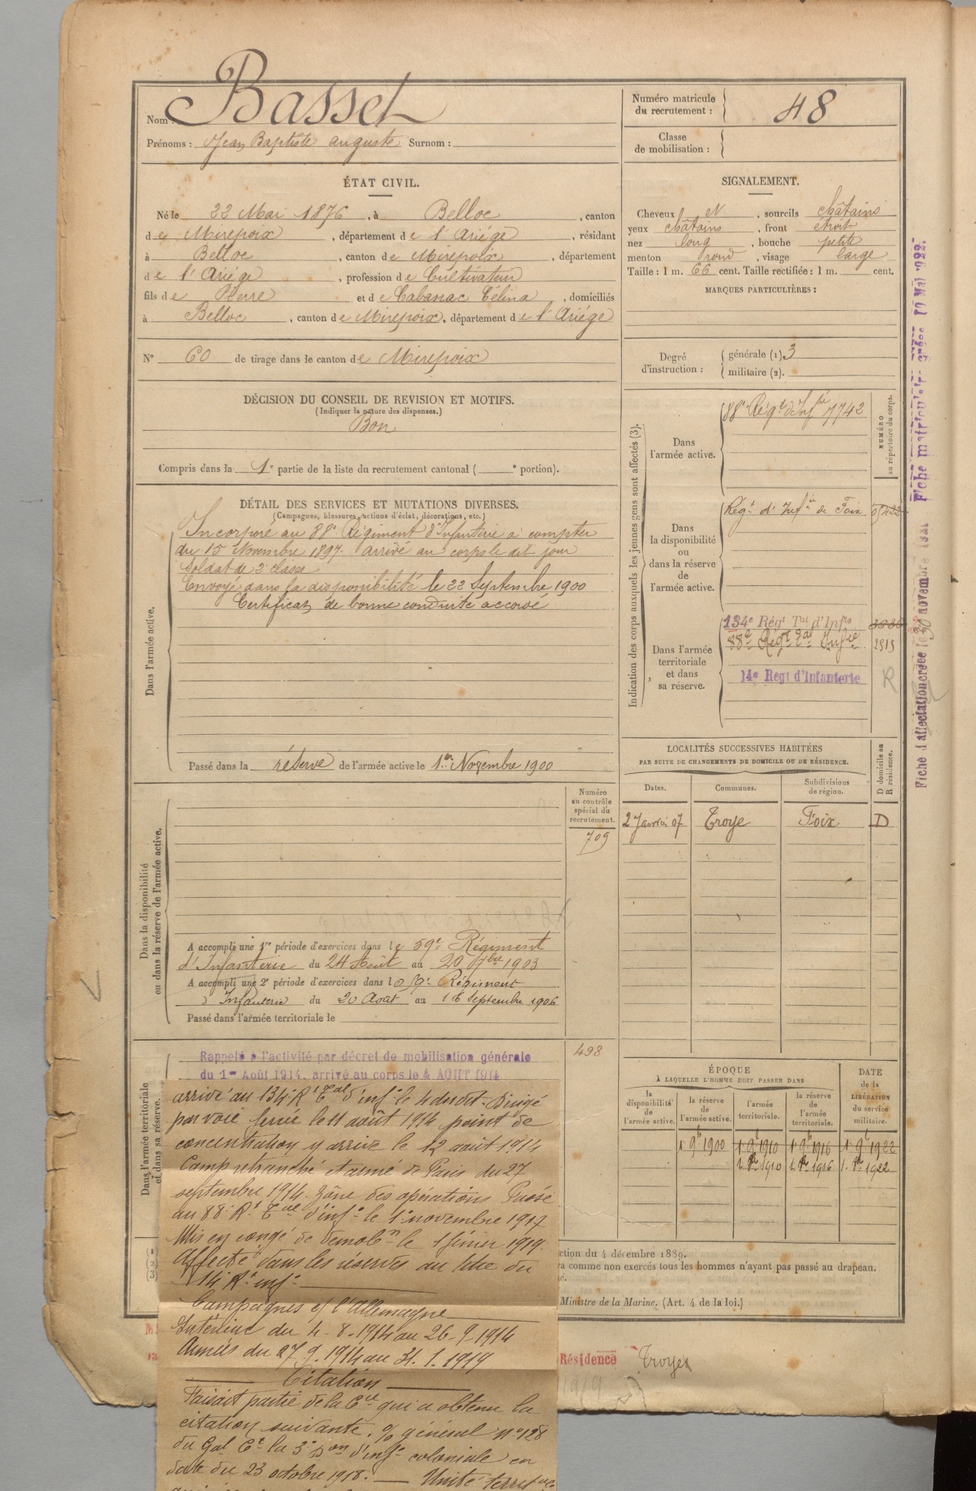 Nom : Basset
Prénoms : Jean Baptiste Auguste Surnom :
Numéro matricule du recrutement : 48
Classe de mobilisation :
ÉTAT CIVIL.
Né le 22 Mai 1876, à Belloc, canton
de Mirepoix, département de l'Ariége, résidant
à Belloc, canton de Mirepoix, département
de l'Ariége, profession de Cultivateur
fils de Pierre et de Cabanac Célina, domiciliés
à Belloc, canton de Mirepoix, département de l'Ariége
N° 60 de tirage dans le canton de Mirepoix
DÉCISION DU CONSEIL DE REVISION ET MOTIFS.
(Indiquer la nature des dispenses.)
Bon
Compris dans la 1e partie de la liste du recrutement cantonal ( e portion).
SIGNALEMENT.
Cheveux et, sourcils châtains
yeux châtains, front étroit
nez long, bouche petite
menton rond, visage large
Taille : 1 m. 66 cent. Taille rectifiée : 1 m. cent.
MARQUES PARTICULIÈRES :
Degré d'instruction : générale (1). 3
militaire (2).
DÉTAIL DES SERVICES ET MUTATIONS DIVERSES.
(Campagnes, blessures, actions d'éclat, décorations, etc.)
Dans l'armée active.
Incorporé au 88e Régiment d'Infanterie à compter
du 15 Novembre 1897. Arrivé au corps le dit jour
Soldat de 2e classe
Envoyé dans la disponibilité le 22 Septembre 1900
Certificat de bonne conduite accordé
Passé dans la réserve de l'armée active le 1er Novembre 1900
Indication des corps auxquels les jeunes gens sont affectés (3).
NUMÉRO au répertoire du corps.
Dans l'armée active.
88e Régt d'Infie 7742
Dans la disponibilité ou dans la réserve de l'armée active.
Régt d'Infie de Foix
Dans l'armée territoriale et dans sa réserve.
134e Régt Tal d'Infie
88e Régt Tal Infie 2815
14e Regt d'Infanterie R
LOCALITÉS SUCCESSIVES HABITÉES
PAR SUITE DE CHANGEMENTS DE DOMICILE OU DE RÉSIDENCE.
Dates. Communes. Subdivisions de région. D domicile ou R résidence.
2 Janvier 07 Troye Foix D
Dans la disponibilité ou dans la réserve de l'armée active.
Numéro au contrôle spécial du recrutement.
709
A accompli une 1re période d'exercices dans le 59e Régiment
d'Infanterie du 24 Août au 20 7bre 1903
A accompli une 2e période d'exercices dans le 59e Régiment
d'Infanterie du 20 Aout au 16 Septembre 1906
Passé dans l'armée territoriale le
Dans l'armée territoriale et dans sa réserve.
498
Rappelé à l'activité par décret de mobilisation générale
du 1er Août 1914, arrivé au corps le 4 AOUT 1914
arrivé au 134e Rt Tal d'infie le 4 du dit. Dirigé
par voie ferrée le 11 août 1914 point de
concentration y arrive le 12 août 1914
Camp retranché Armé de Paris du 27
septembre 1914. Zône des opérations Passé
au 88e Rt Tal d'infie le 1er novembre 1917
Mis en congé de démobon le 1 février 1919.
Affecté dans les réserves au titre du
14e Rt infie
Campagnes cf l'Allemagne
Intérieur du 4-8-1914 au 26-9-1914
Armées du 27.9.1914 au 31.1.1919
Citation
Faisait partie de la Cie qui a obtenu la
citation suivante. O/ général n° 128
du Gal Ct la 3e Don d'infie coloniale en
date du 23 octobre 1918. — Unité territle
ÉPOQUE
À LAQUELLE L'HOMME DOIT PASSER DANS
DATE de la LIBÉRATION du service militaire.
la disponibilité de l'armée active. la réserve de l'armée active. l'armée territoriale. la réserve de l'armée territoriale.
1 9bre 1900 1 9bre 1910 1 9bre 1916 1 9bre 1922
1. 8bre 1910 1. 8bre 1916 1. 8bre 1922
ction du 4 décembre 1889.
ra comme non exercés tous les hommes n'ayant pas passé au drapeau.
Ministre de la Marine. (Art. 4 de la loi.)
Résidence Troyes
1919
Fiche d'affectation créée le 30 novembre
Fiche matriculaire créée 10 Mai 1922.